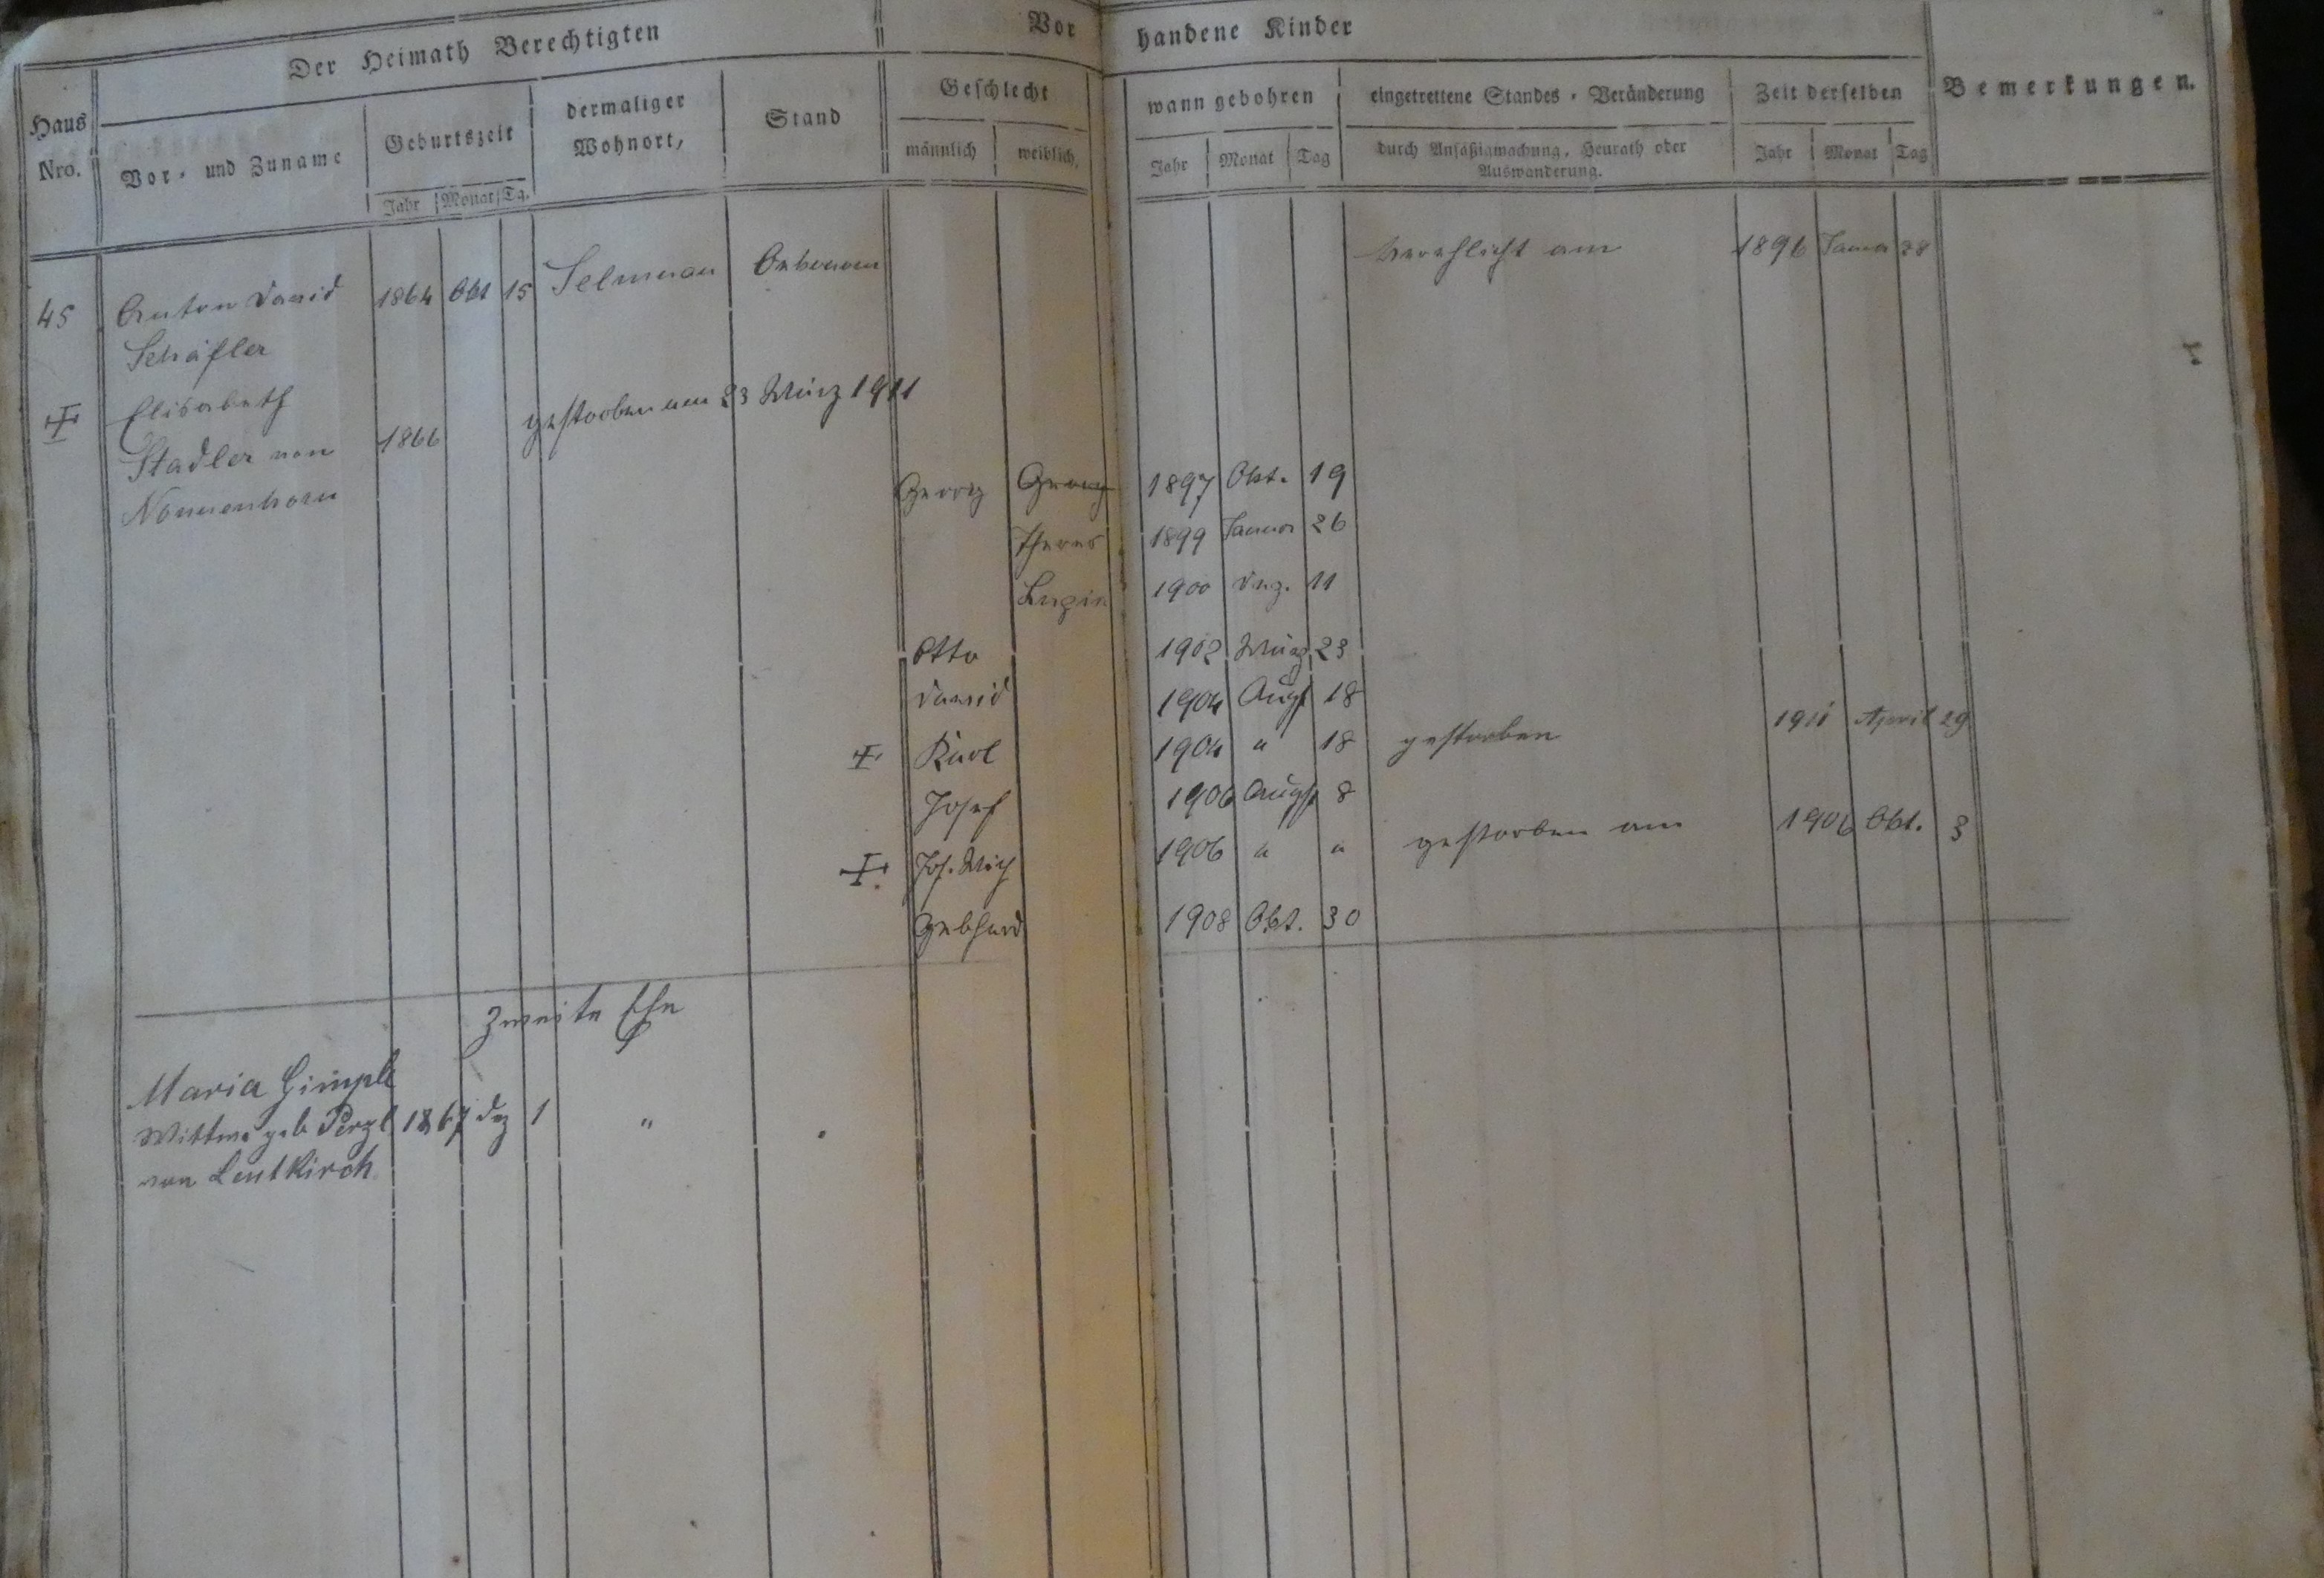 Der Heimath Berechtigten
Vor handene Kinder
Haus Nro.
Vor- und Zuname
Geburtszeit
Jahr Monat Tg.
dermaliger Wohnort,
Stand
Geschlecht
männlich weiblich,
wann gebohren
Jahr Monat Tag
eingetrettene Standes-Veränderung
durch Ansäßigmachung, Heurath oder
Auswanderung.
Zeit derselben
Jahr Monat Tag
Bemerkungen.
45 Anton David 1864 Okt 15 Selmnau Oekonom verehlicht am 1896 Januar 28
Schäfler
Elisabeth gestorben am 23 März 1911
Stadler von 1866
Nonnenhorn
Georg Georg 1897 Okt. 19
Theres 1899 Januar 26
Luzia 1900 Dez. 11
Otto 1902 März 23
David 1904 Augst 18
Karl 1904 " 18 gestorben 1911 April 29
Josef 1906 Augst 8
Jos. Mich 1906 " " gestorben am 1906 Okt. 3
Gebhard 1908 Okt. 30
Zweite Ehe
Maria Gimpl
Wittwe geb 1867 Dez 1 "
von Leutkirch